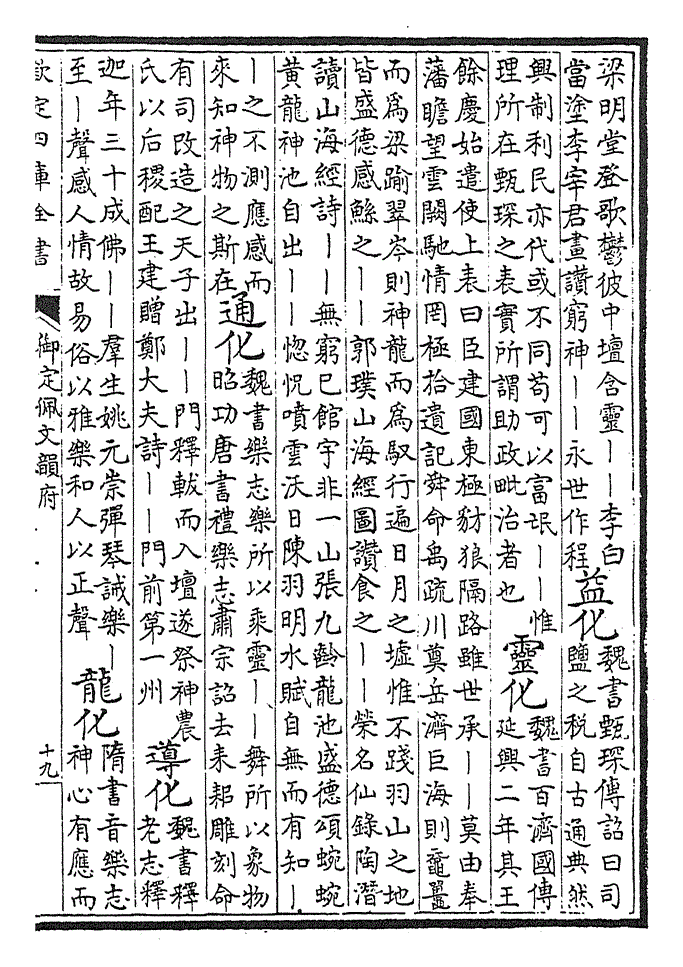 梁明堂登歌鬱彼中壇含靈——李白
當塗李宰君畫讚窮神——永世作程
益化
魏書甄琛傳詔曰司
鹽之税自古通典然
興制利民亦代或不同苟可以富氓——惟
理所在甄琛之表實所謂助政毗治者也
靈化
魏書百濟國傳
延興二年其王
餘慶始遣使上表曰臣建國東極豺狼隔路雖世承——莫由奉
藩瞻望雲闕馳情罔極拾遺記舜命禹疏川奠岳濟巨海則黿鼉
而為梁踰翠岑則神龍而為馭行遍日月之墟惟不踐羽山之地
皆盛德感鯀之——郭璞山海經圖讚食之——榮名仙錄陶潛
讀山海經詩——無窮巳館宇非一山張九齡龍池盛德頌蜿蜿
黄龍神池自出——惚怳噴雲沃日陳羽明水賦自無而有知—
—之不測應感而
來知神物之斯在
通化
魏書樂志樂所以乘靈——舞所以象物
昭功唐書禮樂志肅宗詔去耒耜雕刻命
有司改造之天子出——門釋軷而入壇遂祭神農
氏以后稷配王建贈鄭大夫詩——門前第一州
導化
魏書釋
老志釋
迦年三十成佛——羣生姚元崇彈琴誡樂—
至—聲感人情故易俗以雅樂和人以正聲
龍化
隋書音樂志
神心有應而
欽定四庫全書
御定佩文韻府
十九